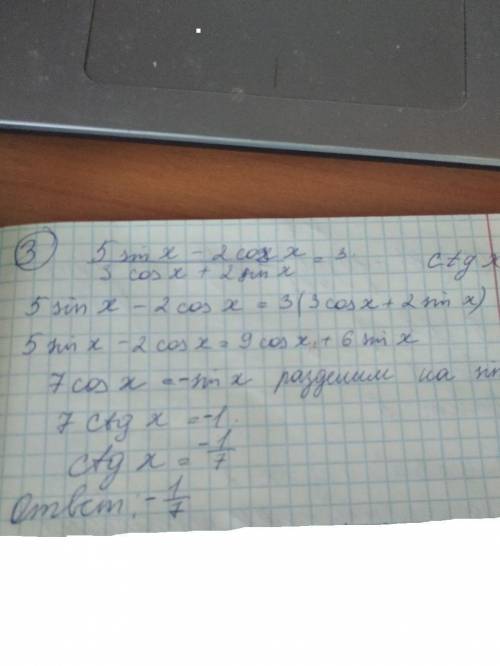 ③ (5 sin x - 2 cos x) / (3 cos x + 2 sin x) = 3. ctg x
5 sin x - 2 cos x = 3(3 cos x + 2 sin x)
5 sin x - 2 cos x = 9 cos x + 6 sin x
7 cos x = -sin x разделим на
7 ctg x = -1.
ctg x = -1/7
Ответ: -1/7